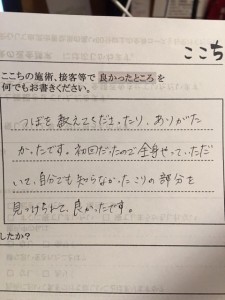 ここち
ここちの施術、接客等で良かったところを
何でもお書きください。
つぼを教えてくださったり、ありがた
かったです。初回だったので全身やっていただ
いて、自分でも知らなかったこりの部分を
見つけられて、良かったです。
したか?